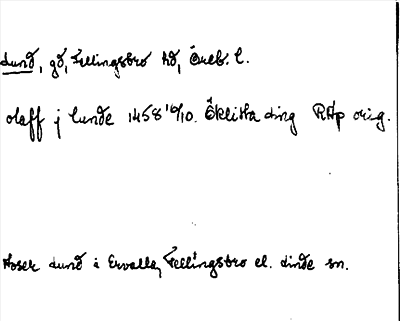 Lund, gd, Fellingsbro hd, Öreb. l.
olaff j lunde 1458 16/10. Öklista ding RAp orig.
Avser Lund i Ervalla, Fellingsbro el. Linde sn.